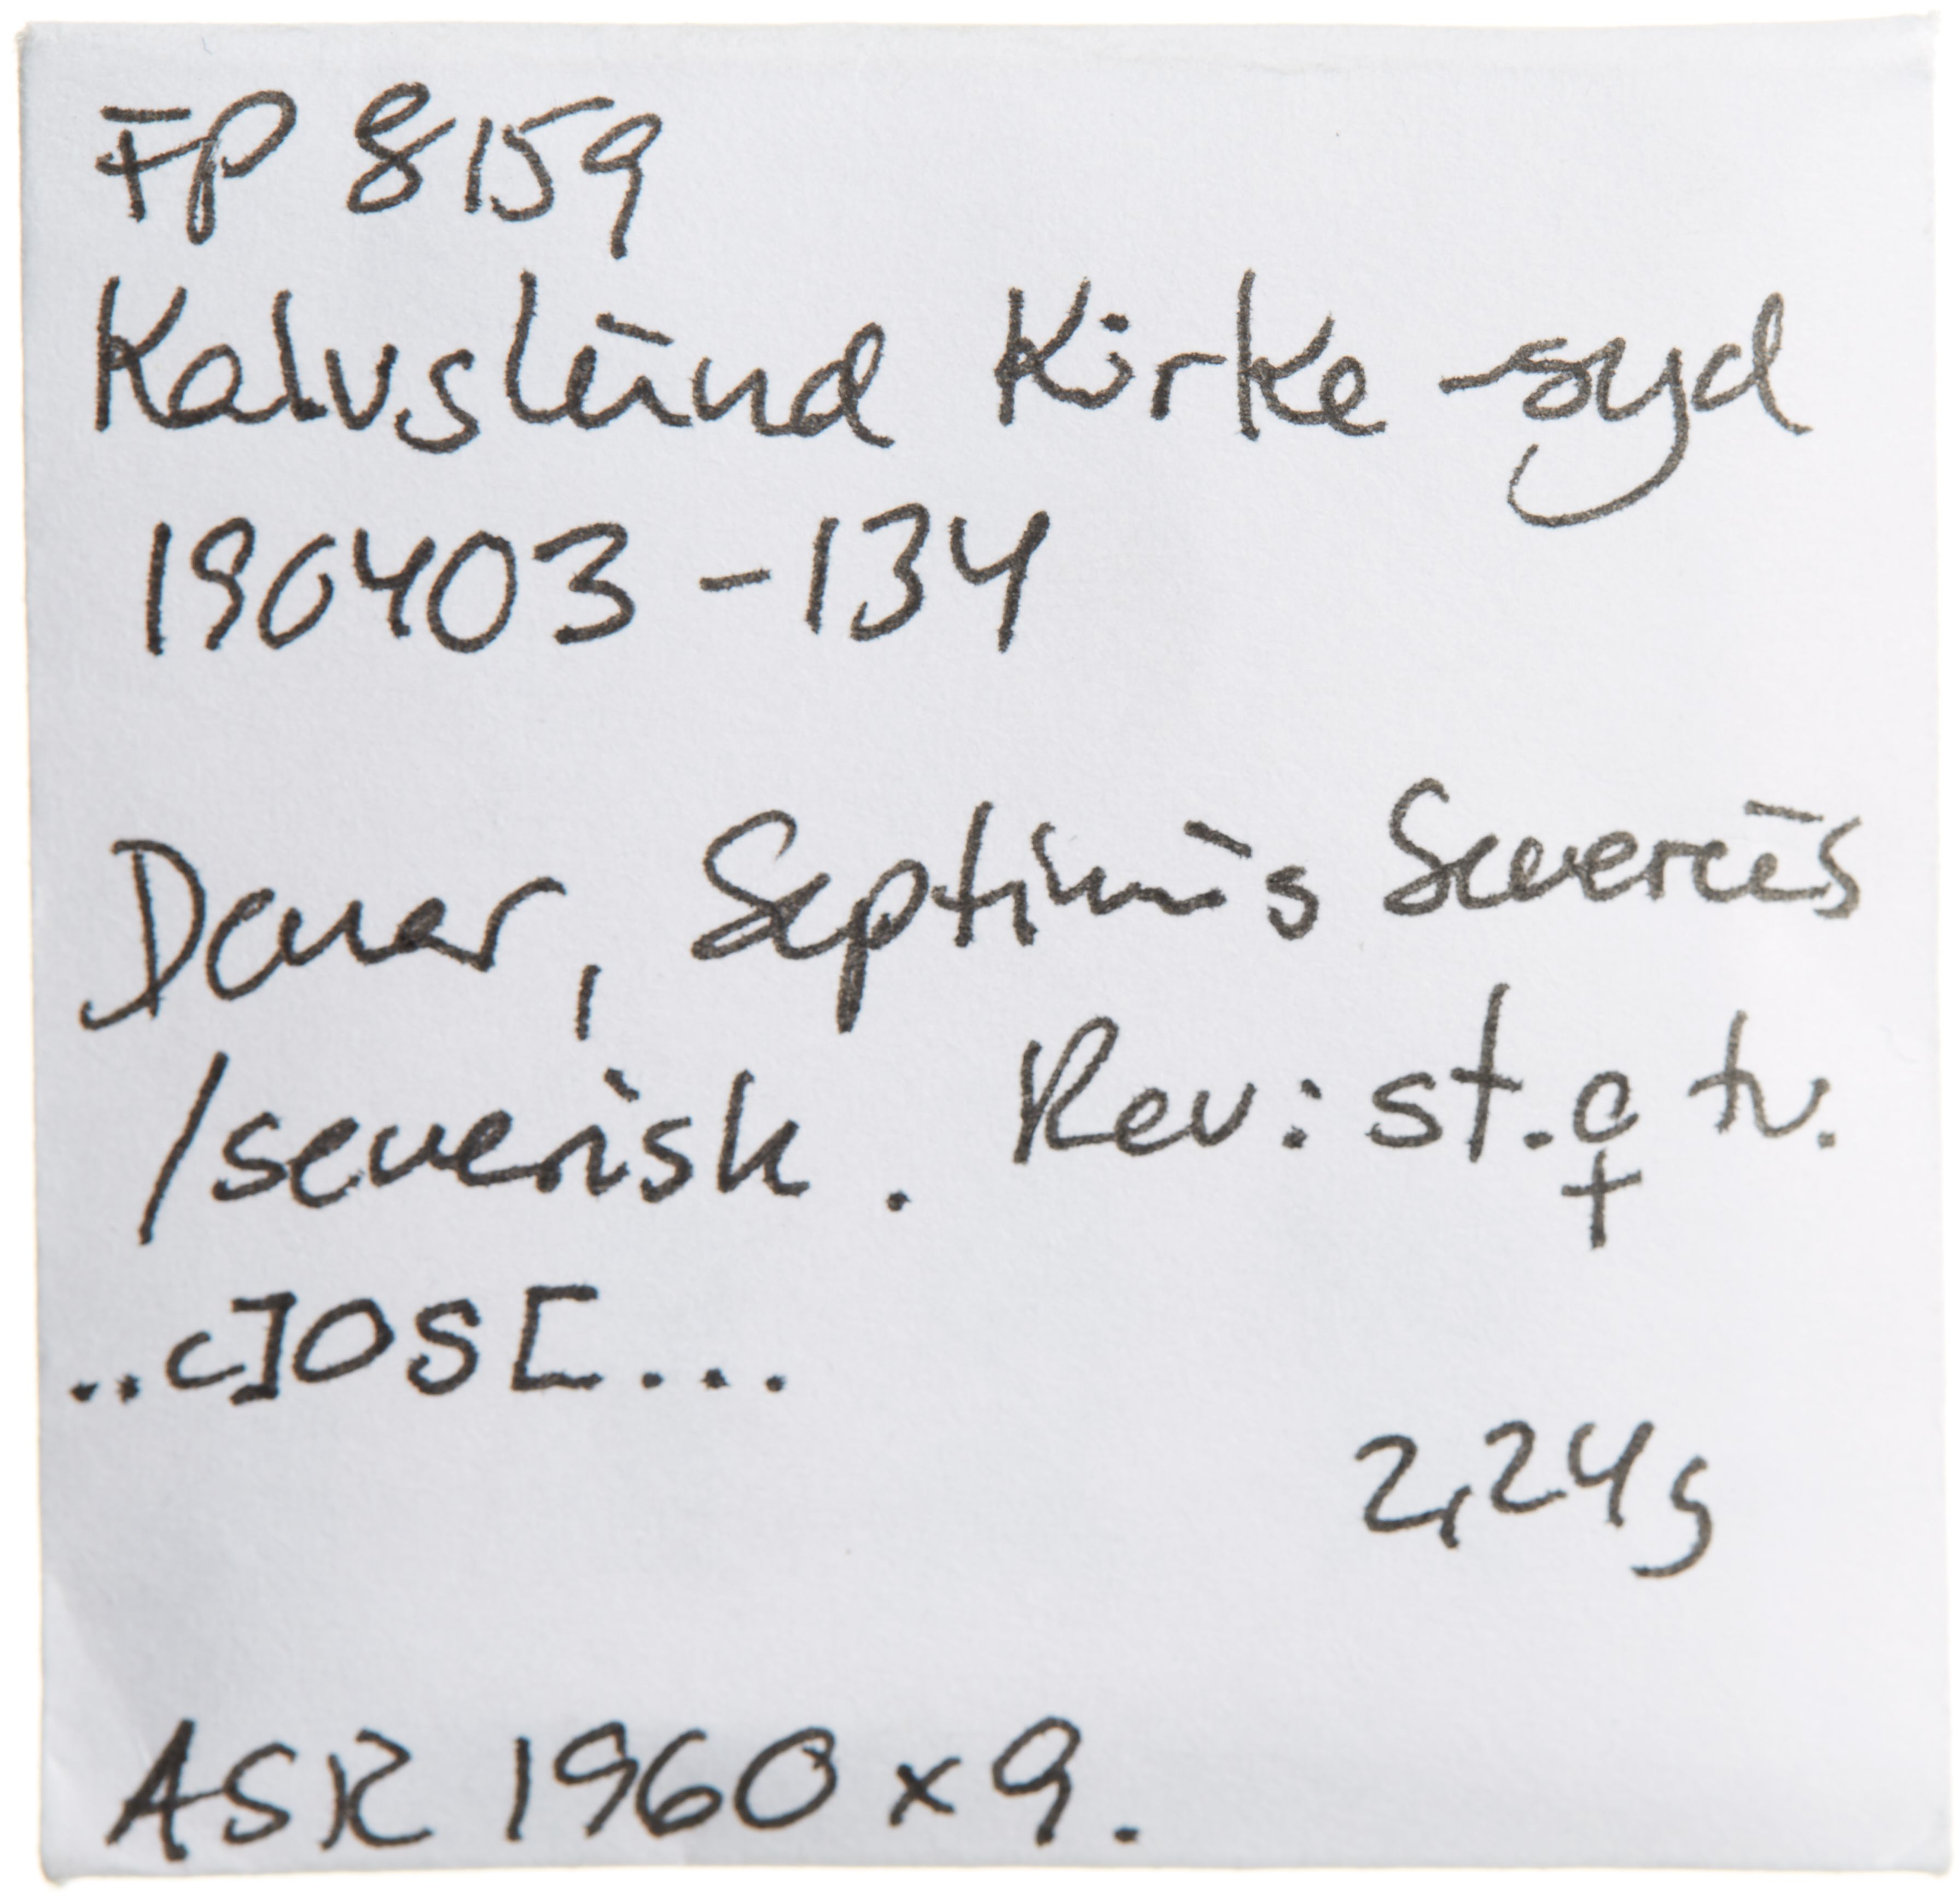 FP 8159
Kalvslund Kirke -syd
190403 - 134
Denar, Septimius Severus
/severisk. Rev: st. ♀ tv.
..c]OS[...
2,24g
ASR 1960 x 9.